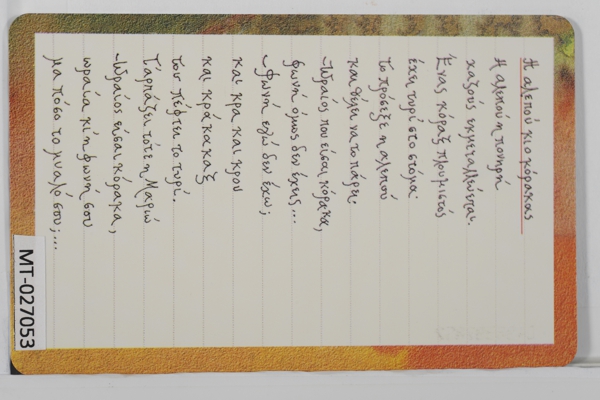 Η αλεπού κι ο κόρακας
Η αλεπού η πονηρή
χαζούς εκμεταλλεύεται.
Ένας κόραξ πλουμιστός
έχει τυρί στο στόμα·
το πρόσεξε η αλεπού
και θέλει να το πάρει.
-Ωραίος που είσαι κόρακα,
φωνή όμως δεν έχεις...
-Φωνή εγώ δεν έχω;
και κρα και κρου
και κρά κα καξ
του πέφτει το τυρί.
Τ' αρπάζει τότε η Μαριώ
-Ωραίος είσαι κόρακα,
ωραία κι η φωνή σου
μα πόσο το μυαλό σου;...
MT-027053